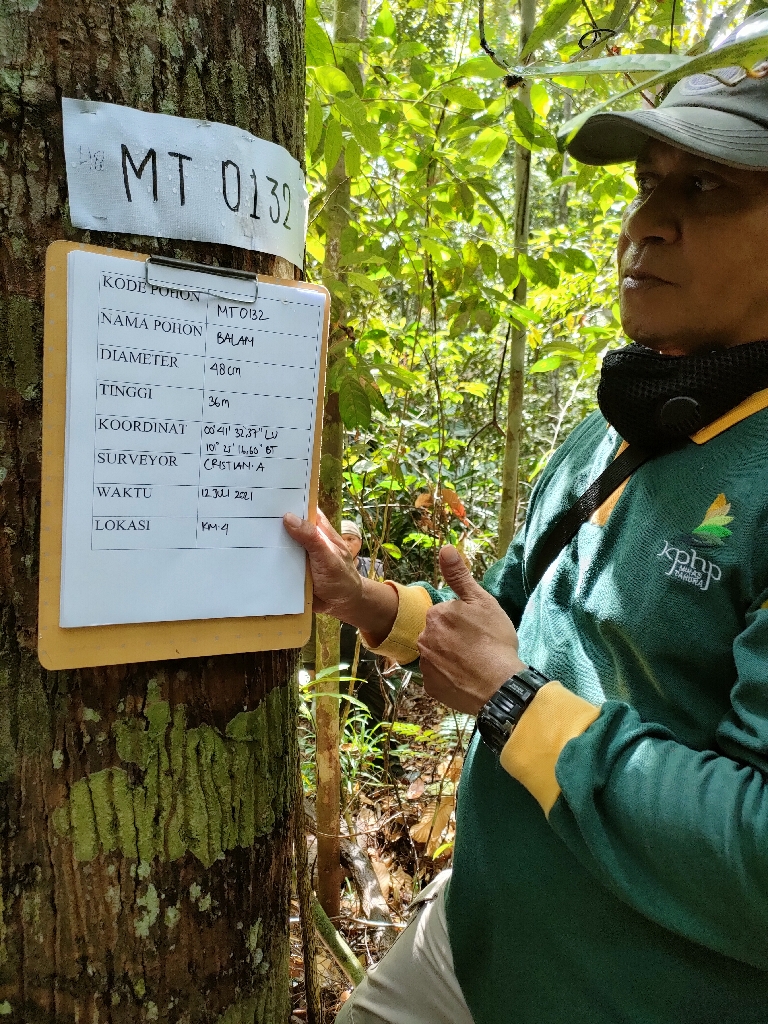 MT 0132
KODE POHON MT 0132
NAMA POHON BALAM
DIAMETER 48 cm
TINGGI 36 m
KOORDINAT 00° 41' 32,37" LU
101° 21' 16,60" BT
SURVEYOR CRISTIAN. A
WAKTU 12 JULI 2021
LOKASI KM. 4
kphp
MINAS
TAHURA